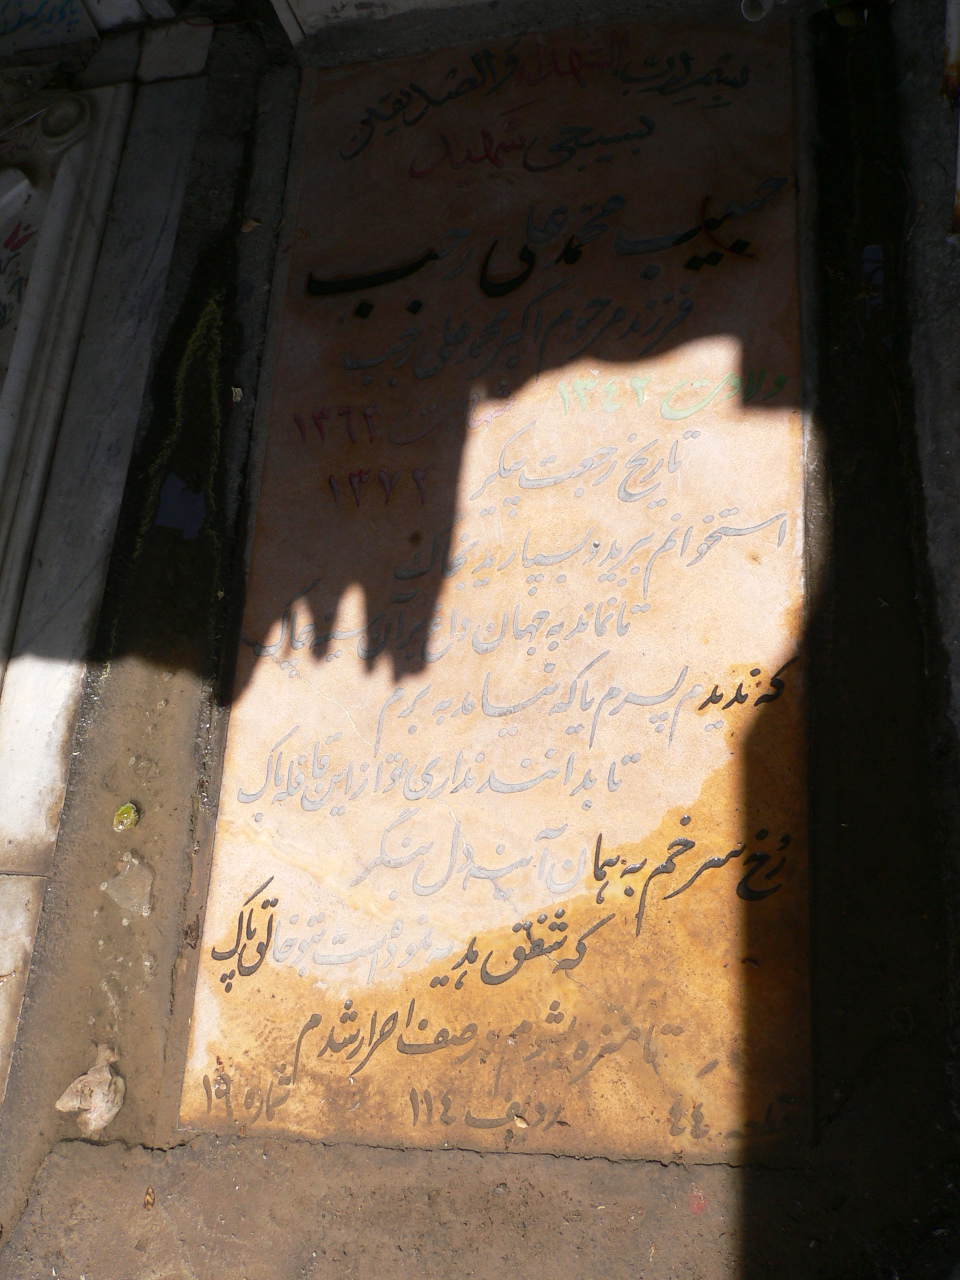 بسم رب الشهداء والصدیقین
بسیجی شهید
حبیب محمدعلی رجب
فرزند مرحوم اکبر محمدعلی رجب
ولادت ۱۳٤۲ شهادت ۱۳٦۲
تاریخ رجعت پیکر ۱۳۷۲
استخوانم ببرید و بسپارید بخاک
تا نماند به جهان داغ بر آن سینه چاک
که ندیدم پسرم یا که نیامد به برم
تا بدانند نداری تو از این قافله باک
رخ سرخم به همان آینه دل بنگر
که شفق هدیه نموده است بتو خالق پاک
تا منزه بشوم در صف احرار شدم
قطعه ٤٤ ردیف ۱۱٤ شماره ۱۹